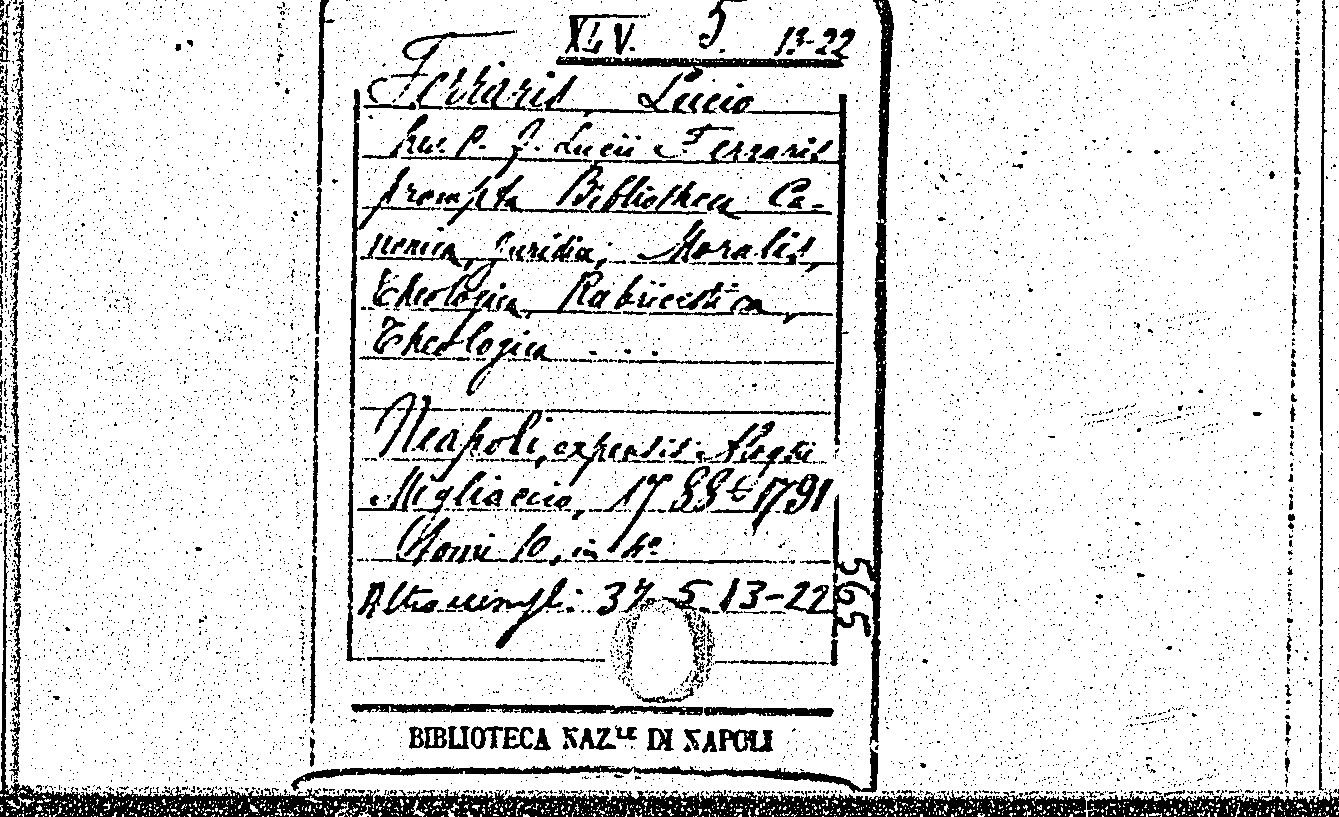 XLV. 5. 13-22
Ferraris Lucio
Rev. P. F. Lucii Ferraris
prompta Bibliotheca Ca-
nonica, Juridica, Moralis,
Theologica, 
Theologica . . .
Neapoli, expensis
Migliaccio, 1788-1791
Tomi 10, in 4º
Altro esempl: 37. 5. 13-22
565
BIBLIOTECA NAZ.LE DI NAPOLI